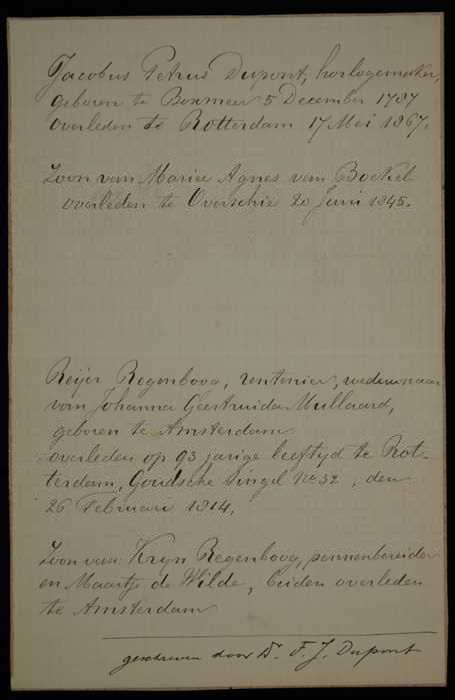 Jacobus Petrus Dupont, horlogemaker,
geboren te Boxmeer 5 December 1787
overleden te Rotterdam 17 Mei 1867.
Zoon van Maria Agnes van Boekel
overleden te Overschie 20 Juni 1845.
Reijer Regenboog, rentenier, weduwnaar
van Johanna Geertruida Mullaard,
geboren te Amsterdam
overleden op 93 jarige leeftijd te Rot-
terdam, Goudsche Singel No 32, den
26 Februari 1814,
Zoon van: Krijn Regenboog, pennenbereider
en Maartje de Wilde, beiden overleden
te Amsterdam
geschreven door Dr. F. J. Dupont